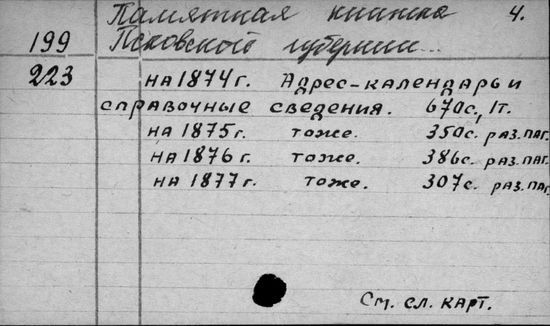 Памятная книжка 4.
199 Псковской губернии...
223 на 1874г. Адрес-календарь и
справочные сведения. 670с., 1т.
на 1875г. тоже. 350с. раз. паг.
на 1876г. тоже. 386с. раз. паг.
на 1877г. тоже. 307с. раз. паг.
См. сл. карт.